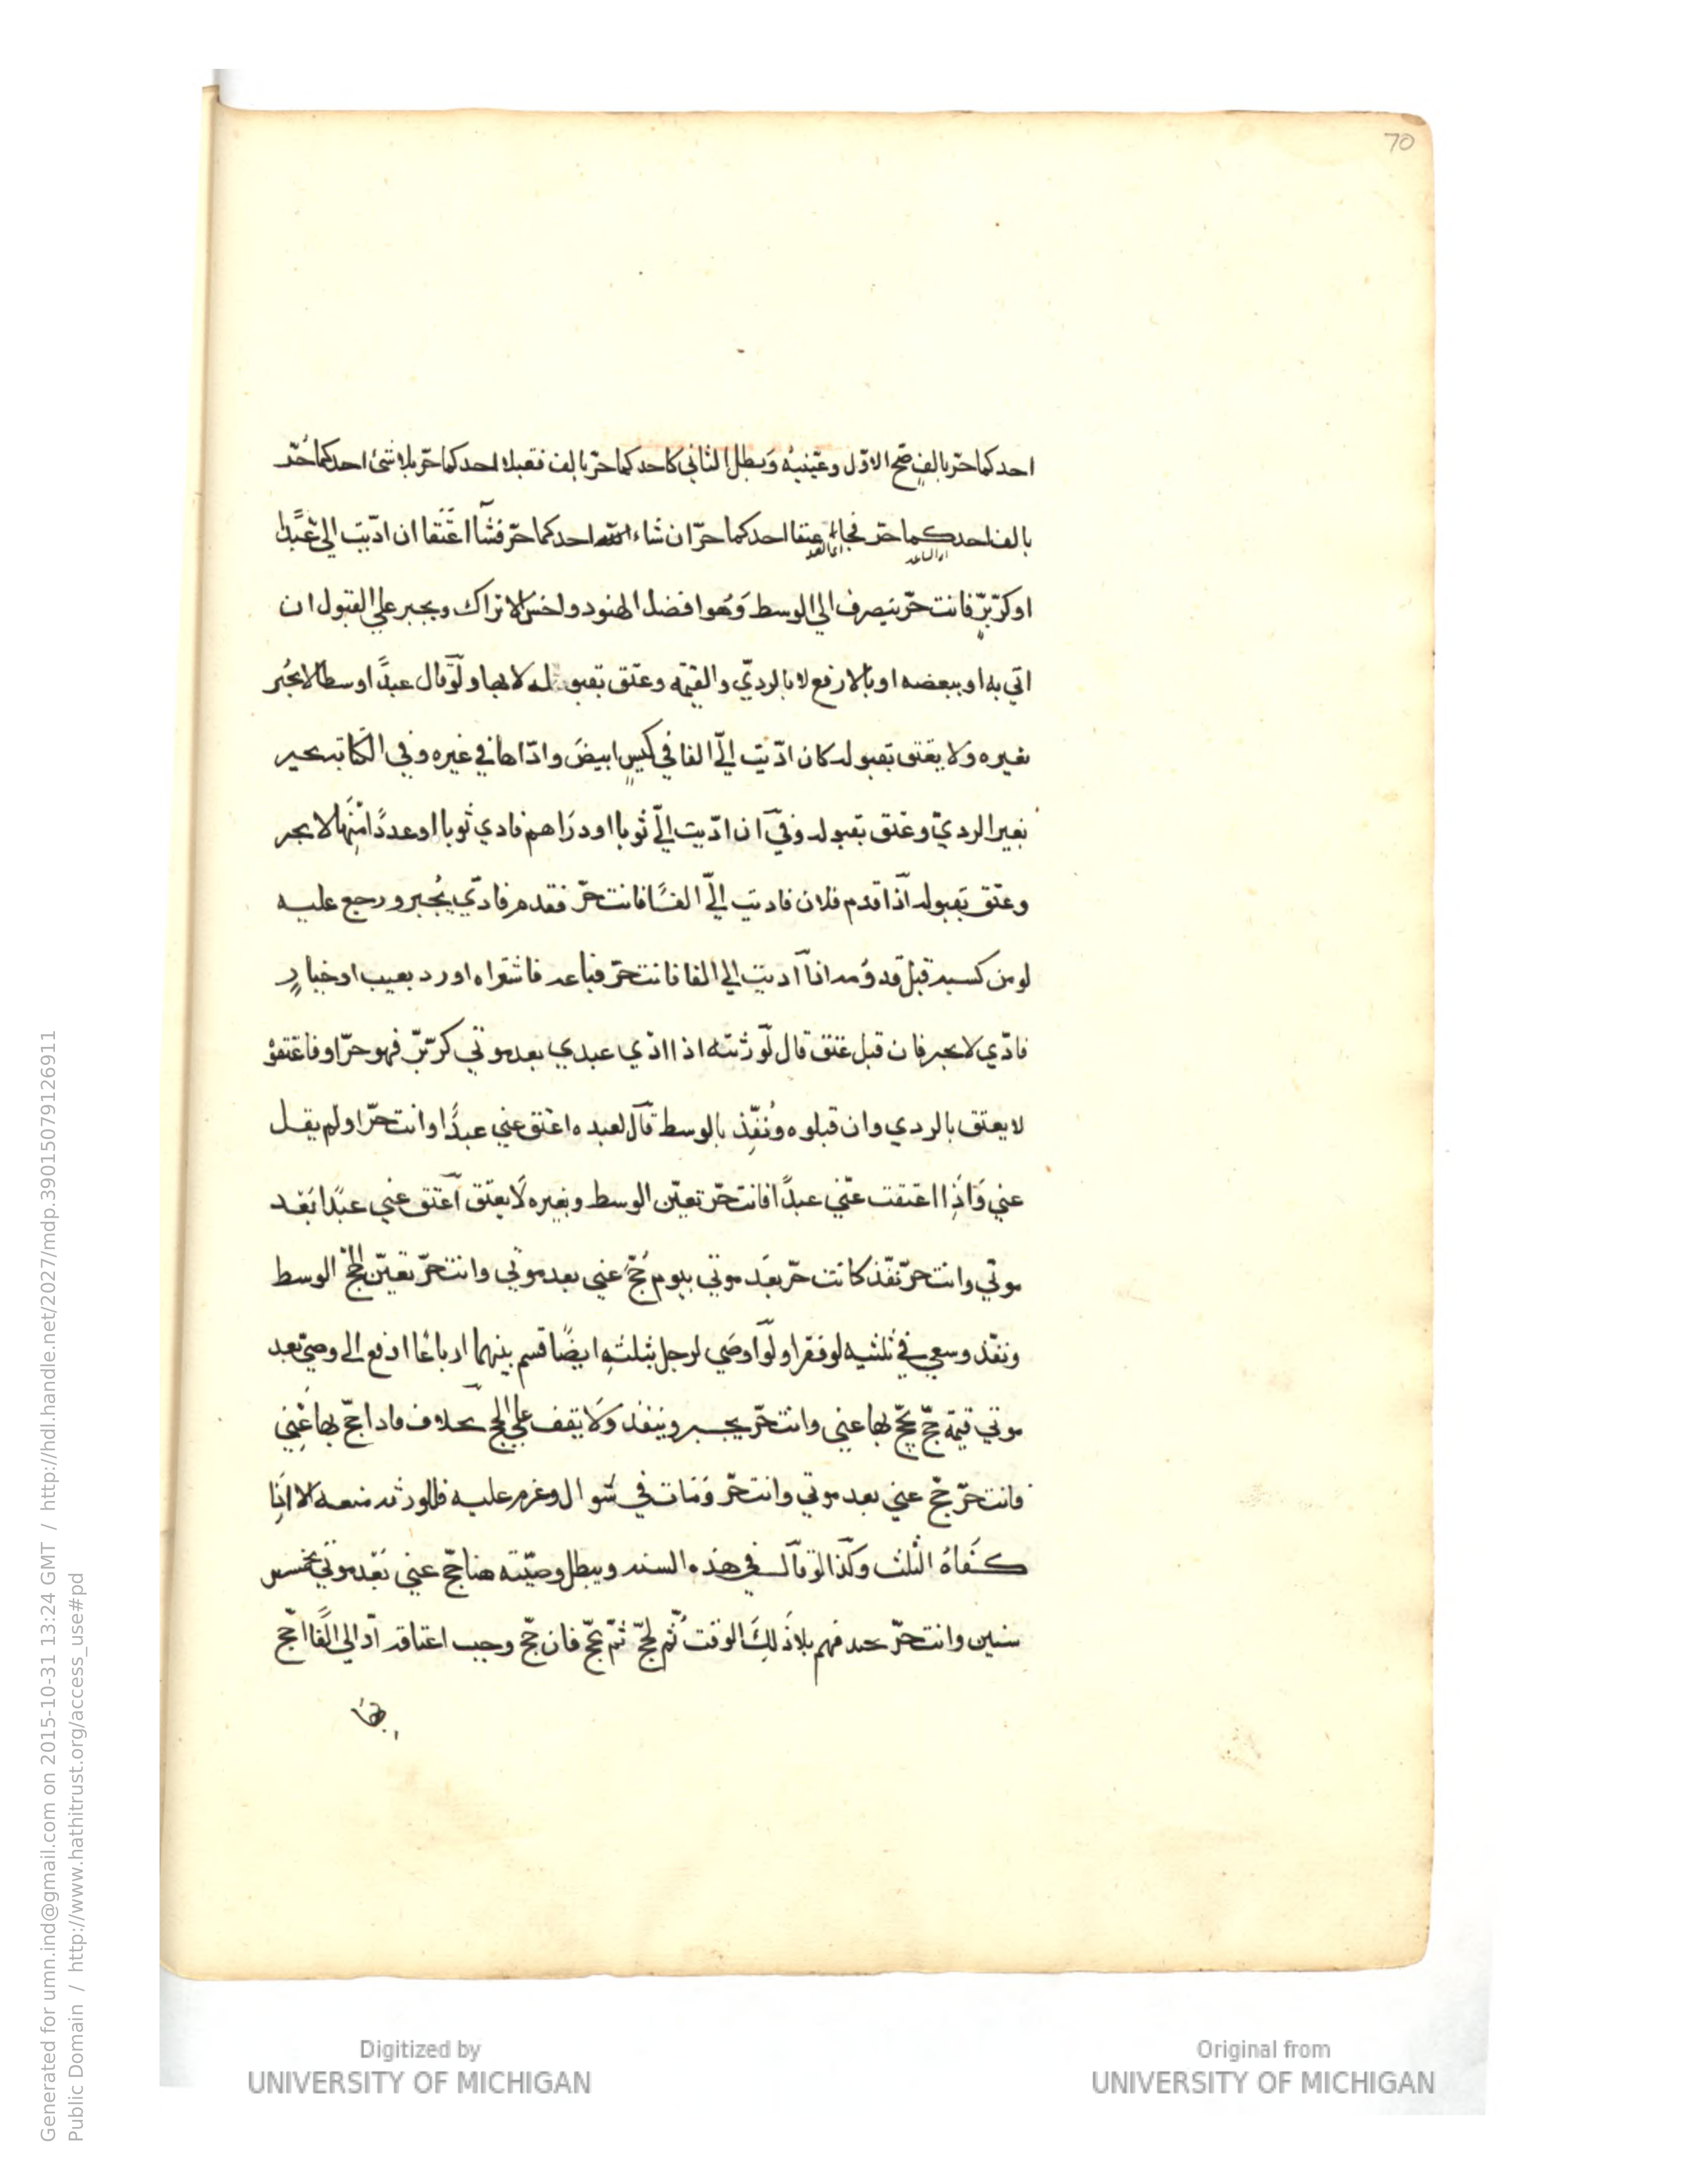 70
احدكما حرّ بالفٍ صَحّ الاوّل وعيّنيه وَبطل الثاني كاحدكما حرّ بالف فقبلا احدكما حرّ بلا شئ احدكما حُرّ
بالف احدكما حرّ فجاء عتقا احدكما حرّ ان شاء الله احدكما حرّ فشآ اعتَقا ان ادّيت اليّ عَبدًا
او كرّ بُرٍّ فانت حرّ ينصرف الي الوسط وَهُو افضل الهنود واخسّ الاتراك ويجبر علي القبول ان
اتي به او ببعضه او بالارفع لا بالرديّ والقيمه وعتق بقبوله لا بها ولَوّ قال عبدًا وسطا لا يجُبر
بغيره ولا يعتق بقبوله كان ادّيت اليّ الفا في كيسٍ ابيضَ وادّاها في غيره وفي الكتابه يجبر
بغير الرديّ وعَتق بقبوله وفي ان ادّيت اليّ ثوبا او درَاهم فادي ثوبا او عددًا منَها لا يجبر
وعتق بقبوله اذا قدم فلان فاديت اليّ الفًا فانت حرّ فقدم فادّي يُجبر ورجع عليه
لو من كسبه قبل قدوُمه ان اديت الي الفا فانت حرّ فباعه فاشتراه او رد بعيب او خيارٍ
فادّي لا يجبر فان قبل عَتق قال لَوّرثته اذا ادّي عبدي بعد موتي كرّ بُرّ فهو حرّ او فاعتقوْ
لا يعتق بالردي وان قبلوه ونُفّذِ بالوسط قال لعبده اعتق عني عبدًا وانت حرّ او لم يقل
عني وَاذِا اعتقت عنّي عبدًا فانت حرّ تعيّن الوسط وبغيره لَا يعتق اعتق عني عبدًا بَعد
موتي وانت حرّ نفّذ كانت حرّ بعَد موتي بيوم حُجّ عني بعد موتي وانت حرّ تعيّن الحجّ الوسط
ونفّذ وسعي في ثلثيه لو فقرا ولَوّ اوصَي لرجل بثلثهِ ايضًا قسم بينهما ارباعًا ادفع الي وصيّ بعد
موتي قيمة حجّ يحجّ بها عني وانت حرّ يجبر وينفذ وَلا يقف علي الحج بخلاف فاذا حجّ بها عَنِي
فانت حرّ حج عني بعد موتي وانت حرّ وَمَات في شوال وعزم عليه فللورثه منعه الا اذِا
كفَاهُ الثلث وكَذا لوّ قال في هذه السنه ويبطل وصيّته هنا حجّ عني بَعْد موتي بخمس
سنين وانت حرّ خدمهم بلا ذَلِك الوقت ثُم يحجّ ثمّ حجّ فان حجّ وجب اعتاقه ادّ الي الفًا احجّ
بها
Generated for umn.ind@gmail.com on 2015-10-31 13:24 GMT / http://hdl.handle.net/2027/mdp.39015079126911
Public Domain / http://www.hathitrust.org/access_use#pd
Digitized by
UNIVERSITY OF MICHIGAN
Original from
UNIVERSITY OF MICHIGAN